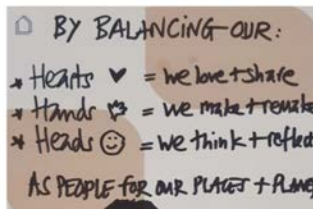 BY BALANCING OUR:
* Hearts ♥ = we love + share
* Hands = we make + remake
* Heads ☺ = we think + reflect
AS PEOPLE FOR OUR PLACES + PLANE